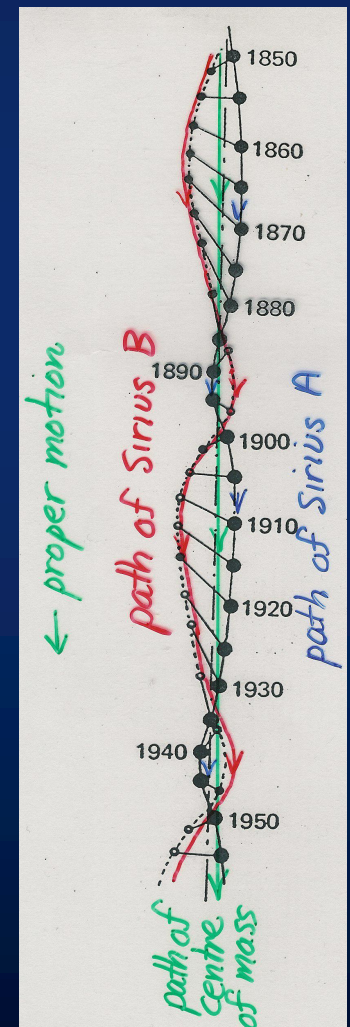 1850
1860
1870
1880
1890
1900
1910
1920
1930
1940
1950
← proper motion
path of Sirius B
path of Sirius A
path of
centre
of mass